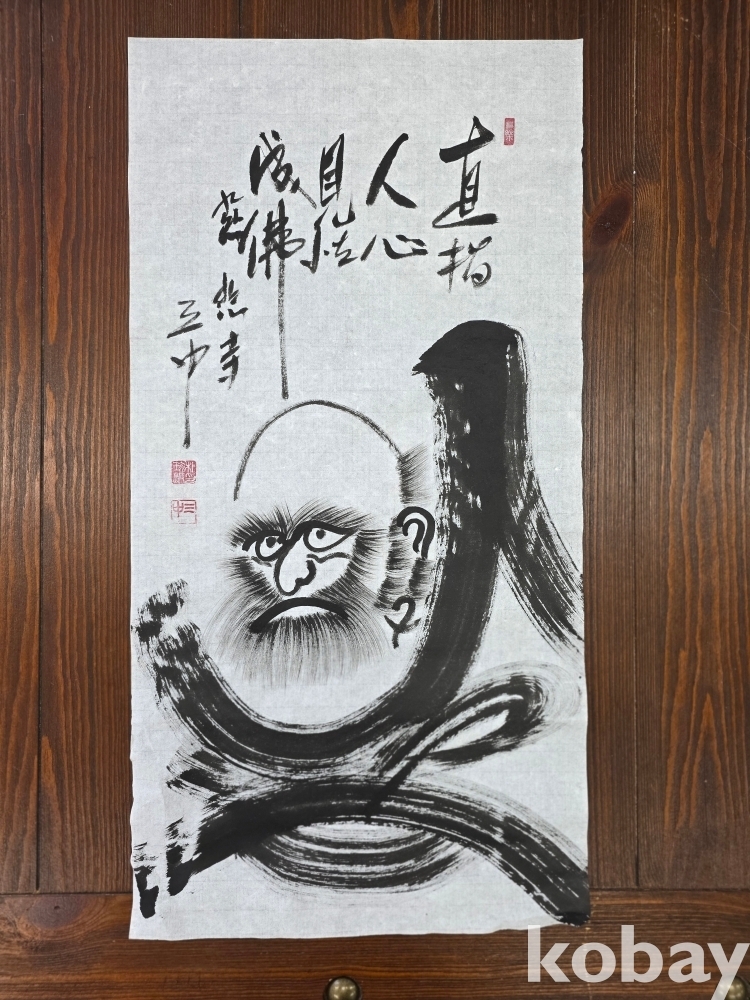 直指
人心
見性
成佛
慈悲寺
三中
三中
kobay